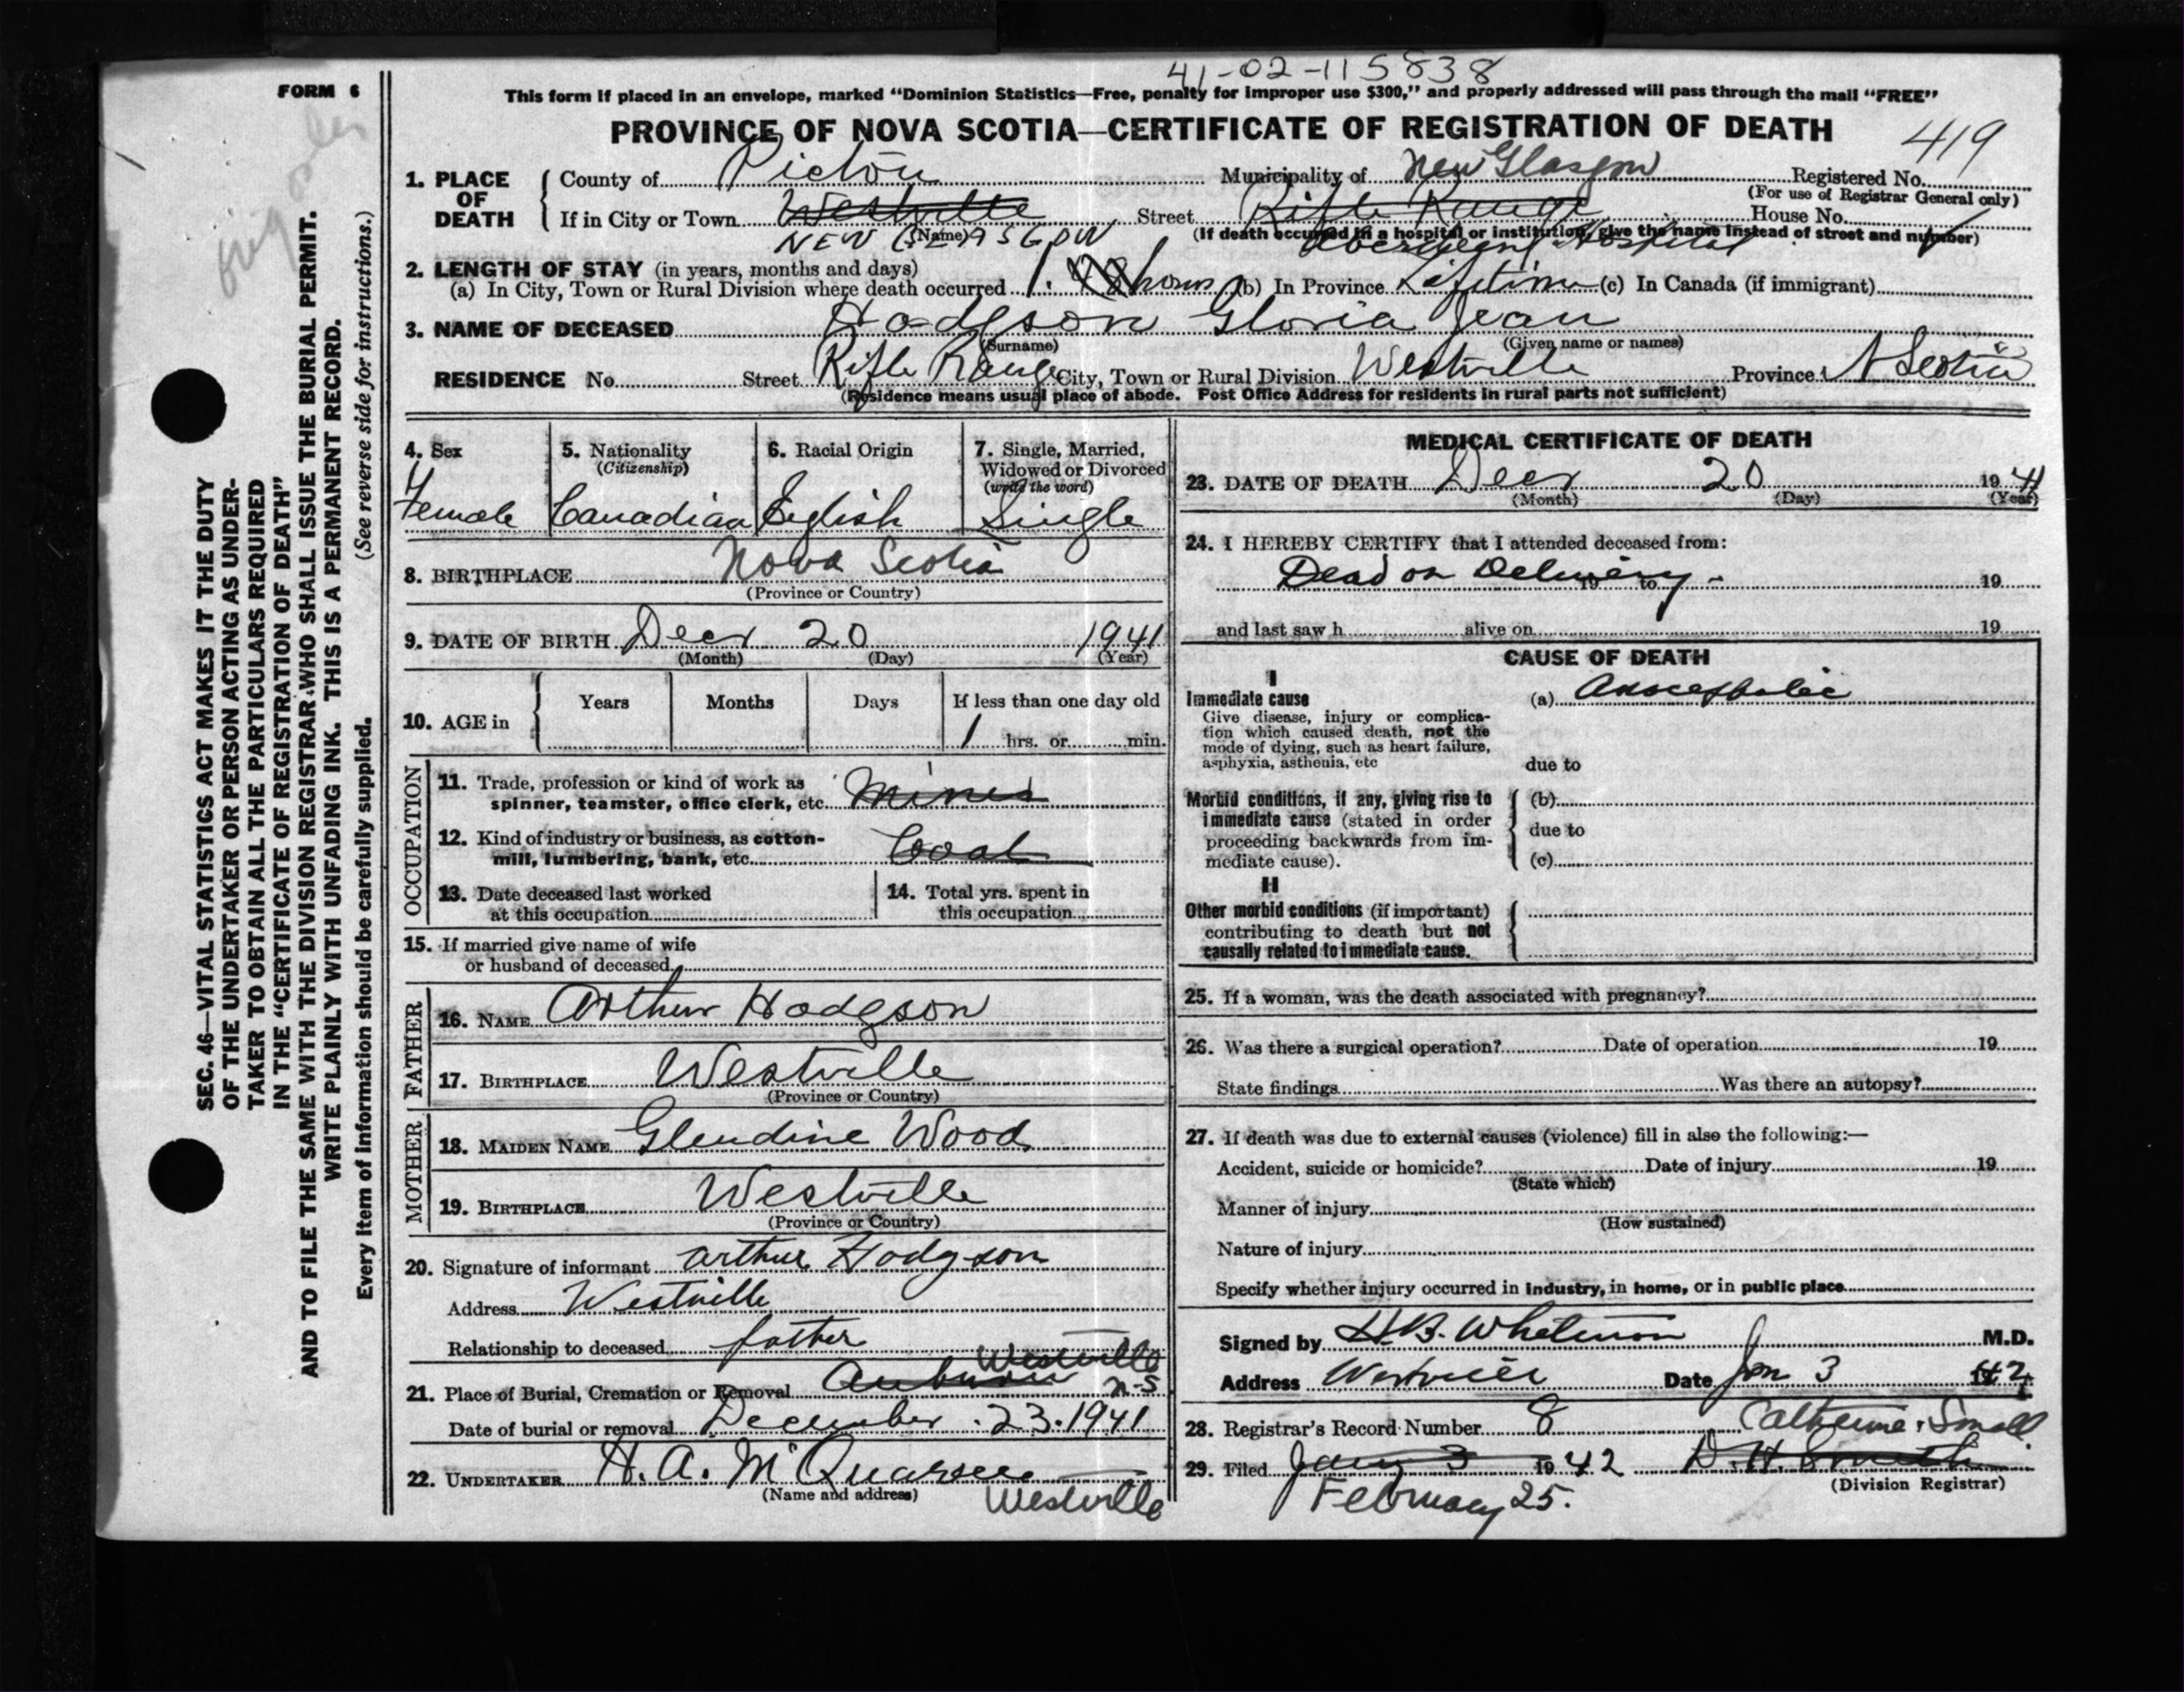 41-02-115838
FORM 6
This form if placed in an envelope, marked "Dominion Statistics—Free, penalty for improper use $300," and properly addressed will pass through the mail "FREE"
PROVINCE OF NOVA SCOTIA—CERTIFICATE OF REGISTRATION OF DEATH
419
1. PLACE OF DEATH
County of Pictou Municipality of New Glasgow Registered No.
(For use of Registrar General only)
If in City or Town Westville Street Rifle Range House No.
(Name)
NEW GLASGOW
(If death occurred in a hospital or institution, give the name instead of street and number)
Aberdeen Hospital
2. LENGTH OF STAY (in years, months and days)
(a) In City, Town or Rural Division where death occurred 1. hours (b) In Province Lifetime (c) In Canada (if immigrant)
3. NAME OF DECEASED Hodgson Gloria Jean
(Surname) (Given name or names)
RESIDENCE No. Street Rifle Range City, Town or Rural Division Westville Province N Scotia
(Residence means usual place of abode. Post Office Address for residents in rural parts not sufficient)
4. Sex
Female
5. Nationality
(Citizenship)
Canadian
6. Racial Origin
English
7. Single, Married,
Widowed or Divorced
(write the word)
Single
8. BIRTHPLACE Nova Scotia
(Province or Country)
9. DATE OF BIRTH Decr 20 1941
(Month) (Day) (Year)
10. AGE in Years Months Days If less than one day old
1 hrs. or min.
OCCUPATION
11. Trade, profession or kind of work as
spinner, teamster, office clerk, etc. Miner
12. Kind of industry or business, as cotton-
mill, lumbering, bank, etc. Coal
13. Date deceased last worked
at this occupation
14. Total yrs. spent in
this occupation
15. If married give name of wife
or husband of deceased
FATHER
16. NAME Arthur Hodgson
17. BIRTHPLACE Westville
(Province or Country)
MOTHER
18. MAIDEN NAME Glendine Wood
19. BIRTHPLACE Westville
(Province or Country)
20. Signature of informant Arthur Hodgson
Address Westville
Relationship to deceased father
Westville
21. Place of Burial, Cremation or Removal Auburn N-S
Date of burial or removal December 23. 1941
22. UNDERTAKER H. A. McQuarrie
(Name and address) Westville
MEDICAL CERTIFICATE OF DEATH
23. DATE OF DEATH Decr 20 1941
(Month) (Day) (Year)
24. I HEREBY CERTIFY that I attended deceased from:
Dead on Delivery - 19 to 19
and last saw h alive on 19
CAUSE OF DEATH
I
Immediate cause
Give disease, injury or complica-
tion which caused death, not the
mode of dying, such as heart failure,
asphyxia, asthenia, etc
(a)
due to
Morbid conditions, if any, giving rise to
immediate cause (stated in order
proceeding backwards from im-
mediate cause).
(b)
due to
(c)
II
Other morbid conditions (if important)
contributing to death but not
causally related to immediate cause.
25. If a woman, was the death associated with pregnancy?
26. Was there a surgical operation? Date of operation 19
State findings Was there an autopsy?
27. If death was due to external causes (violence) fill in also the following:—
Accident, suicide or homicide? Date of injury 19
(State which)
Manner of injury
(How sustained)
Nature of injury
Specify whether injury occurred in industry, in home, or in public place
Signed by H.B. Whitman M.D.
Address Westville Date Jan 3 1942
28. Registrar's Record Number 8 Catherine Small
29. Filed Jany 3 1942 D.H. Smith
(Division Registrar)
February 25.
SEC. 46—VITAL STATISTICS ACT MAKES IT THE DUTY
OF THE UNDERTAKER OR PERSON ACTING AS UNDER-
TAKER TO OBTAIN ALL THE PARTICULARS REQUIRED
IN THE "CERTIFICATE OF REGISTRATION OF DEATH"
AND TO FILE THE SAME WITH THE DIVISION REGISTRAR WHO SHALL ISSUE THE BURIAL PERMIT.
WRITE PLAINLY WITH UNFADING INK. THIS IS A PERMANENT RECORD.
Every item of information should be carefully supplied. (See reverse side for instructions.)